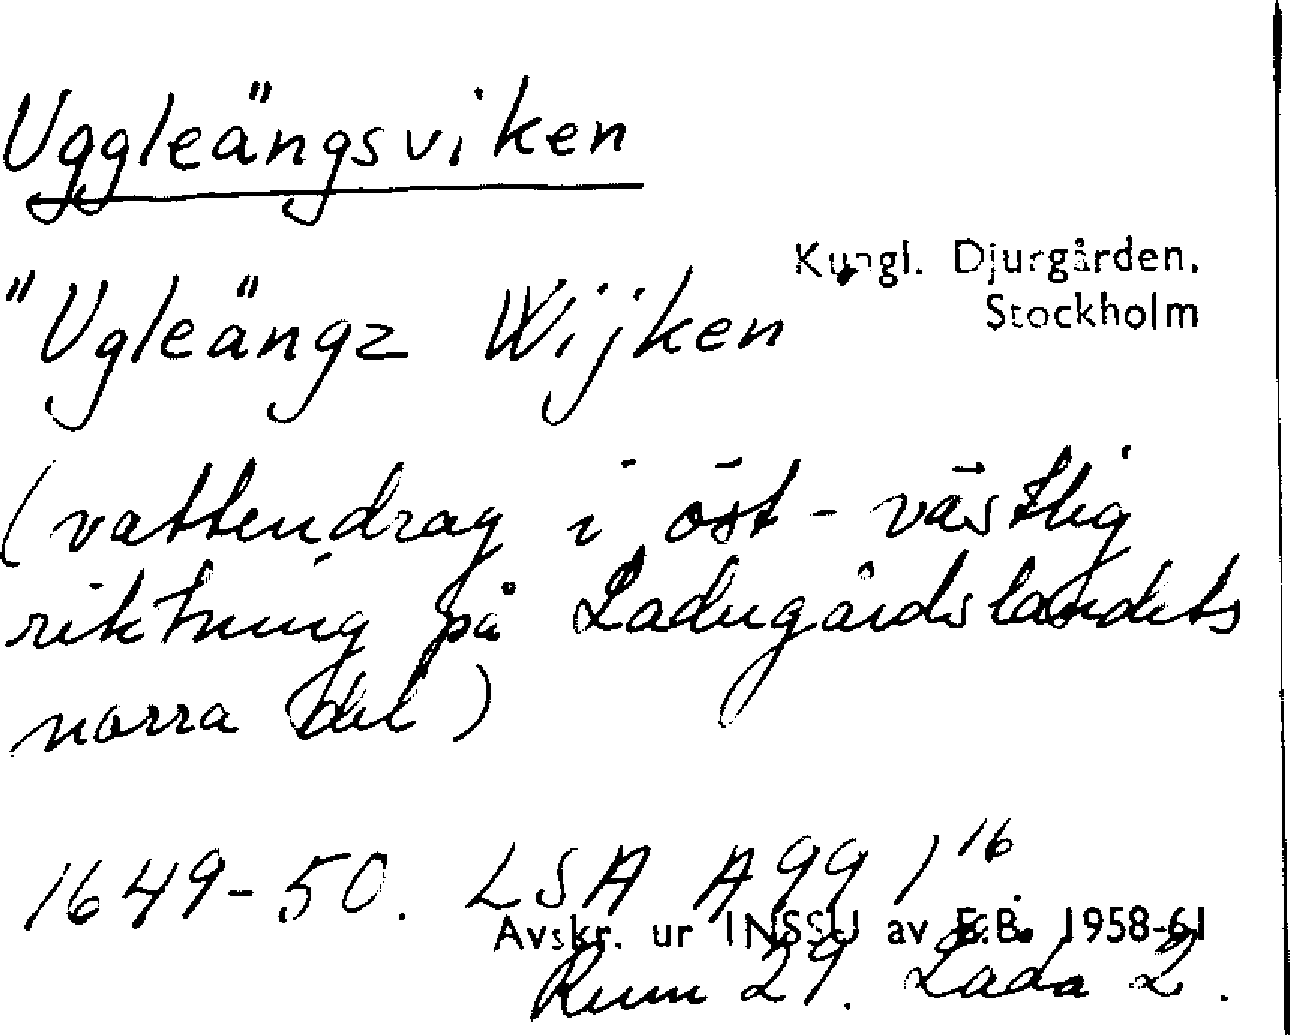 Uggleängsviken
Kungl. Djurgården,
Stockholm
"Ugleängz Wijken
(vattendrag i öst-västlig
riktning på Ladugårdslandets
norra del)
1649-50. LSA A99 1¹⁶
Avskr. ur INSSU av E.B. 1958-61
Rum 29. Låda 2.